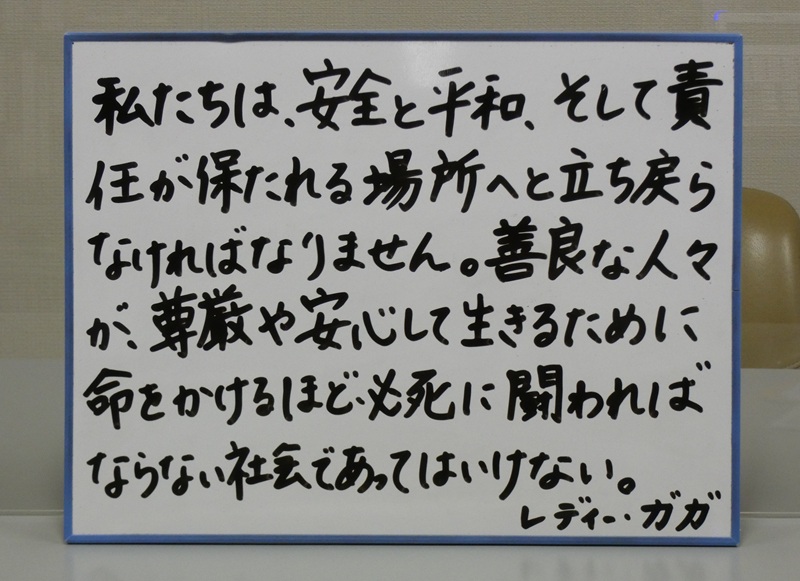 私たちは、安全と平和、そして責
任が保たれる場所へと立ち戻ら
なければなりません。善良な人々
が、尊厳や安心して生きるために
命をかけるほど、必死に闘われれば
ならない社会であってはいけない。
レディー・ガガ